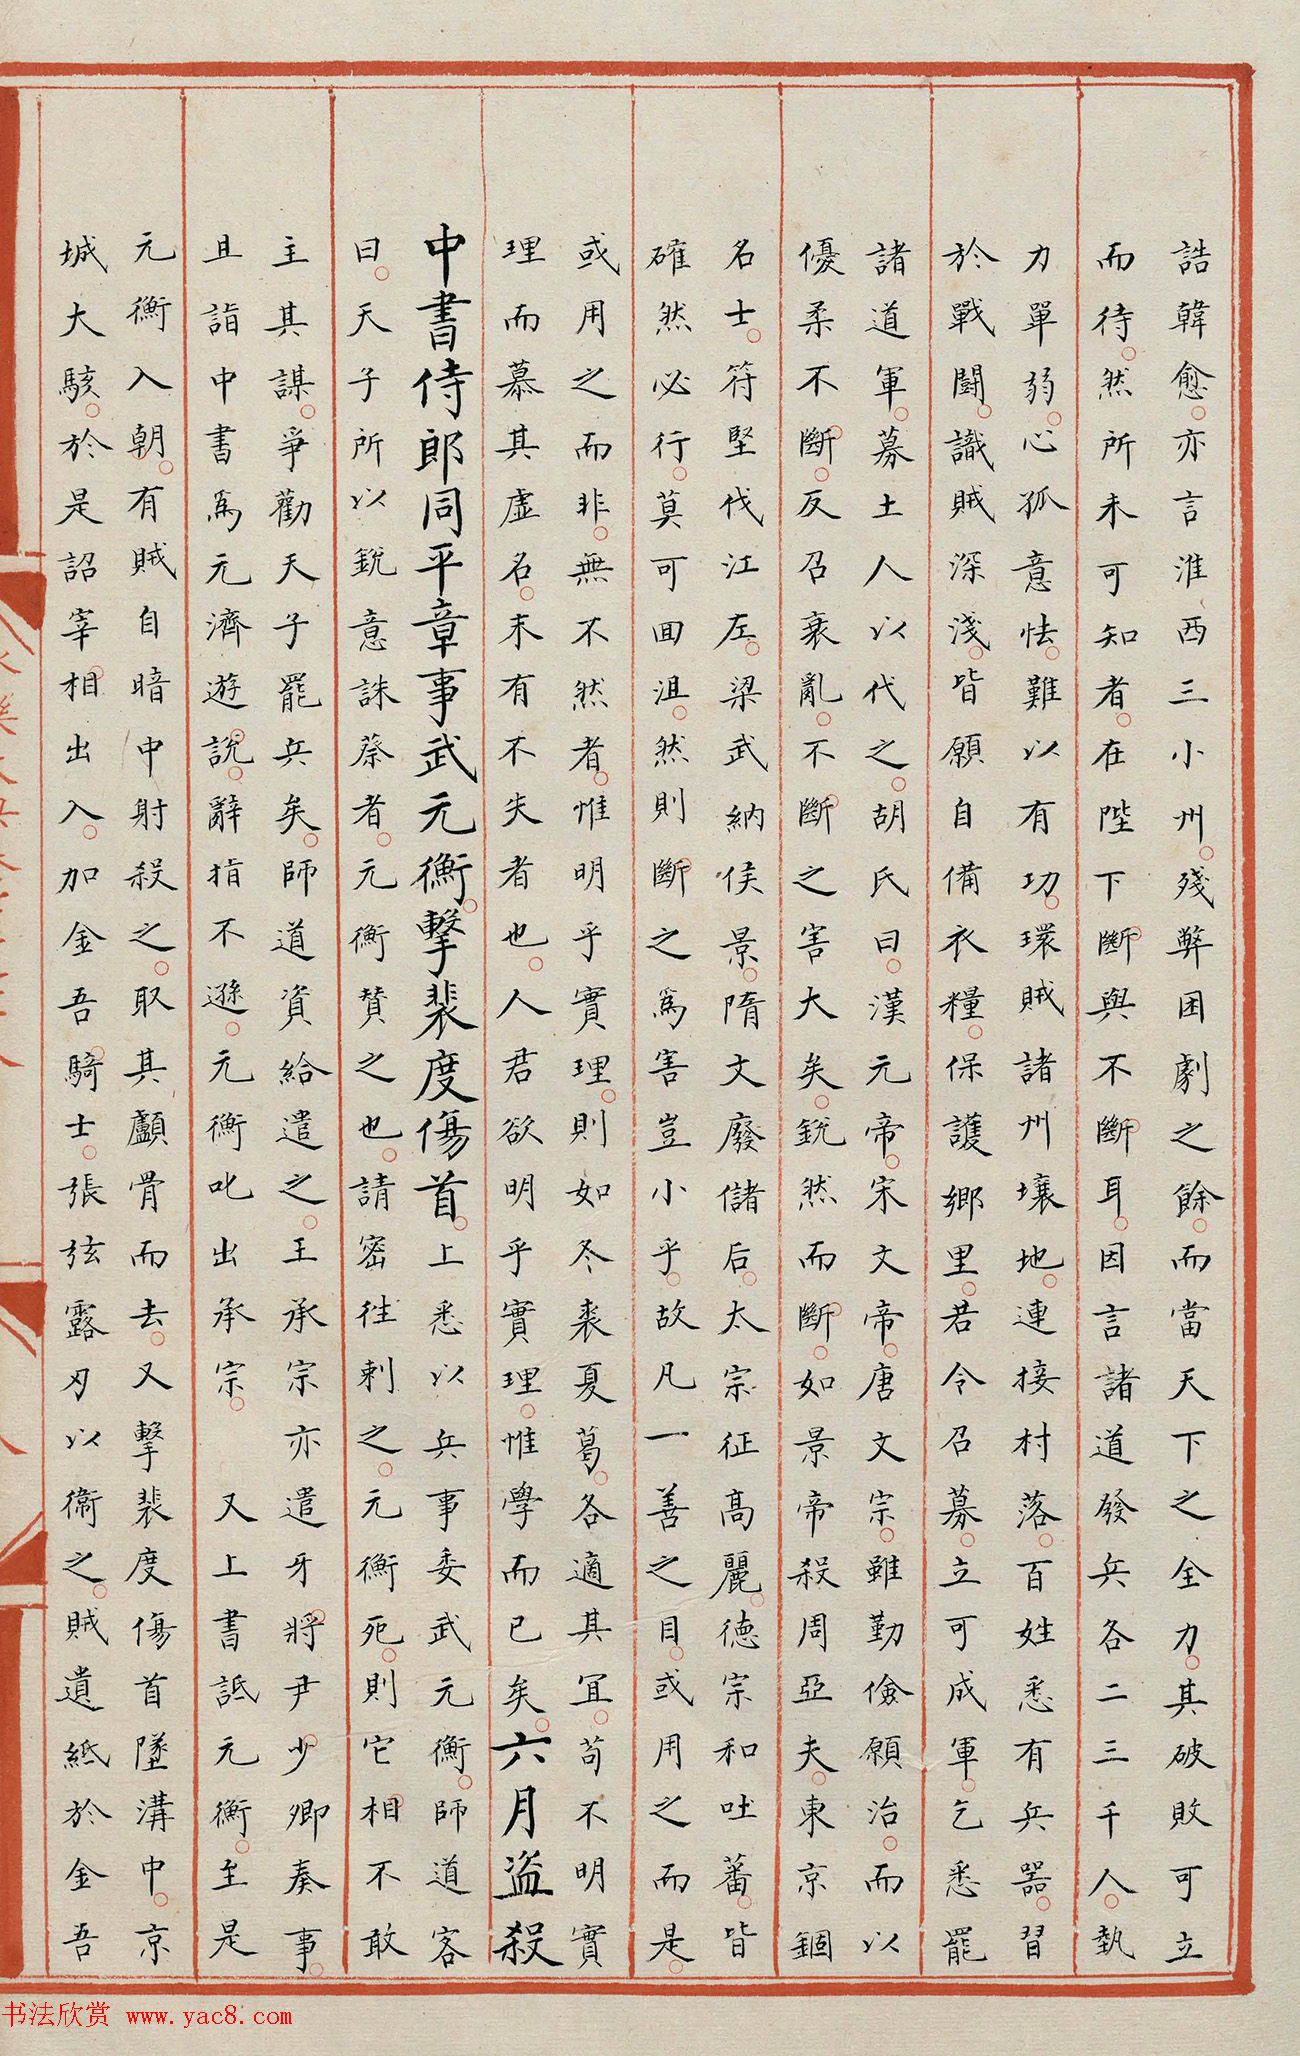 誥韓愈亦言淮西三小州殘弊困劇之餘而當天下之全力其破敗可立
而待然所未可知者在陛下斷與不斷耳因言諸道發兵各二三千人埶
力單弱心孤意怯難以有功環賊諸州壤地連接村落百姓悉有兵器習
於戰鬪識賊深淺皆願自備衣糧保護鄉里若令召募立可成軍乞悉罷
諸道軍募土人以代之胡氏曰漢元帝宋文帝唐文宗雖勤儉願治而以
優柔不斷反召衰亂不斷之害大矣銳然而斷如景帝殺周亞夫東京錮
名士符堅伐江左梁武納侯景隋文廢儲后太宗征高麗德宗和吐蕃皆
確然必行莫可回沮然則斷之爲害豈小乎故凡一善之目或用之而是
或用之而非無不然者惟明乎實理則如冬裘夏葛各適其宜苟不明實
理而慕其虛名末有不失者也人君欲明乎實理惟學而已矣六月盗殺
中書侍郎同平章事武元衡擊裴度傷首上悉以兵事委武元衡師道客
曰天子所以銳意誅蔡者元衡贊之也請密往刺之元衡死則它相不敢
主其謀爭勸天子罷兵矣師道資給遣之王承宗亦遣牙將尹少卿奏事
且詣中書爲元濟遊說辭指不遜元衡叱出承宗又上書詆元衡至是
元衡入朝有賊自暗中射殺之取其顱骨而去又擊裴度傷首墜溝中京
城大駭於是詔宰相出入加金吾騎士張弦露刃以衛之賊遺紙於金吾
书法欣赏 www.yac8.com